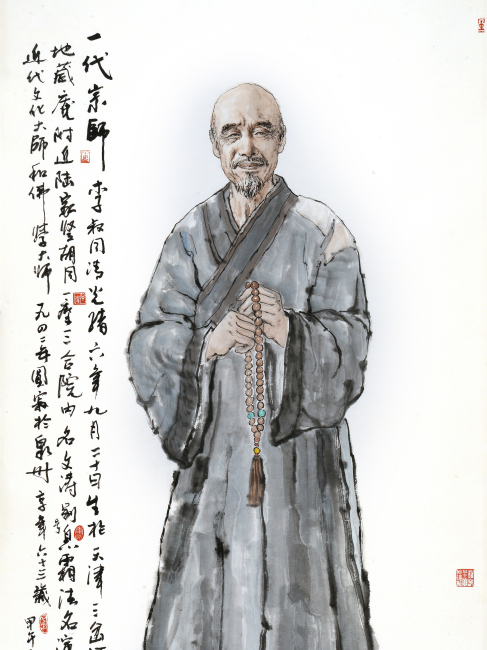 一代宗師 李叔同清光緒六年九月二十日生於天津三岔河
地藏庵附近陸家竪胡同一座三合院内 名文濤 別號息霜 法名演
近代文化大師和佛學大師 一九四二年圓寂於泉州 享年六十三歲 甲午